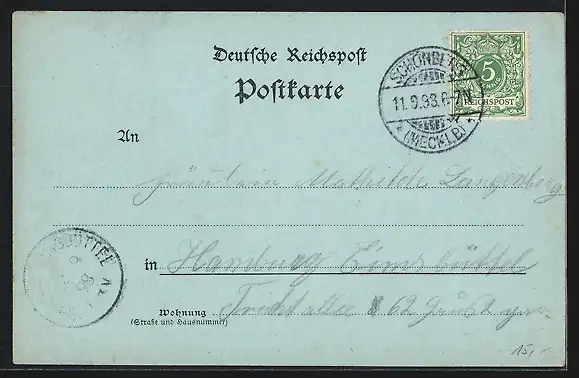 Deutsche Reichspost
Postkarte
SCHÖNBERG
11.9.98.6-7N.
(MECKLB)
5
REICHSPOST
An
Fräulein Mathilde Langenberg
in Hamburg Eimsbüttel
Wohnung
(Straße und Hausnummer)
62
15,-